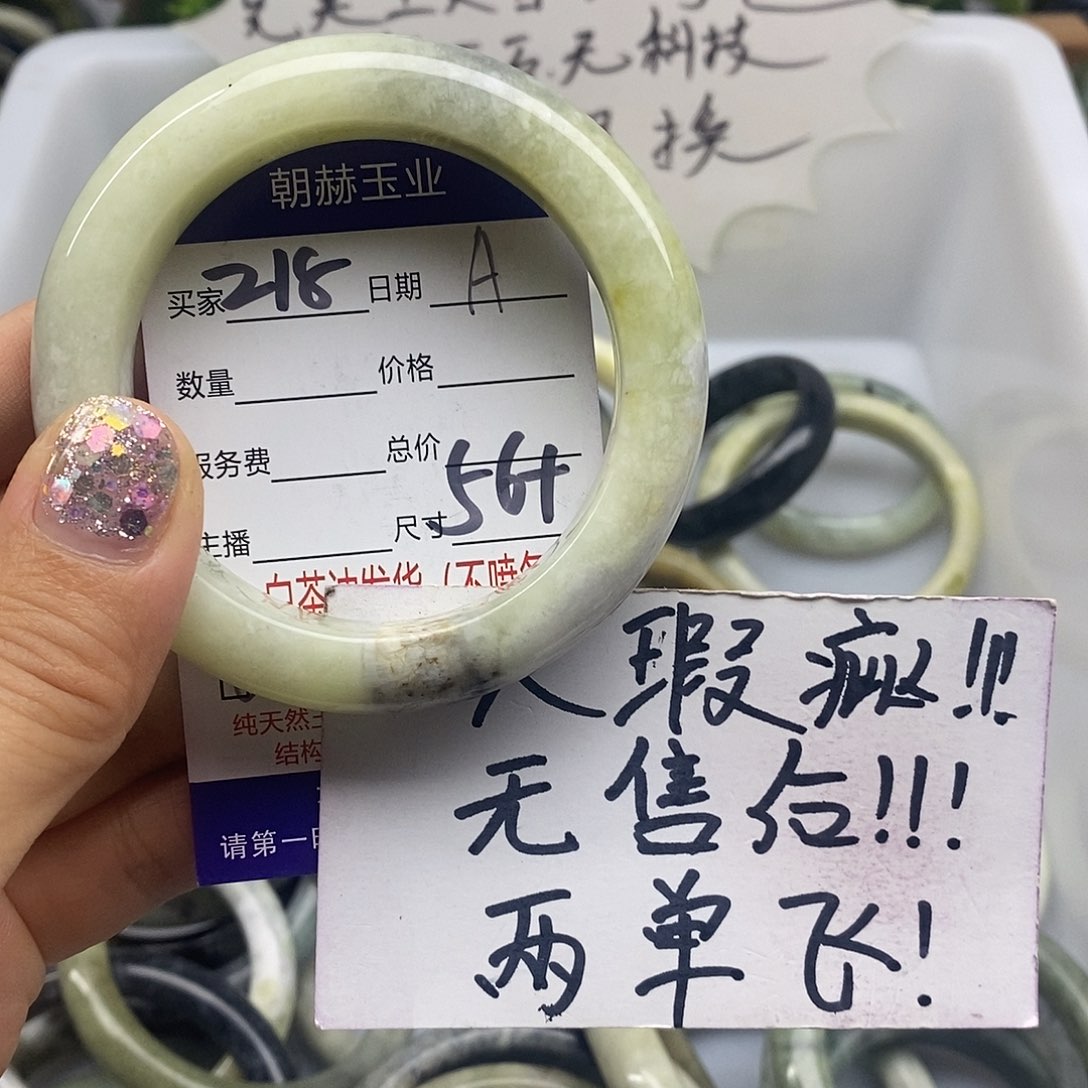 无科技
换
朝赫玉业
买家 218 日期 A
数量 价格
服务费 总价
主播 尺寸 56+
白茶油发货（不喷
纯天然
结构
请第一
瑕疵!!!
无售后!!!
两单飞!